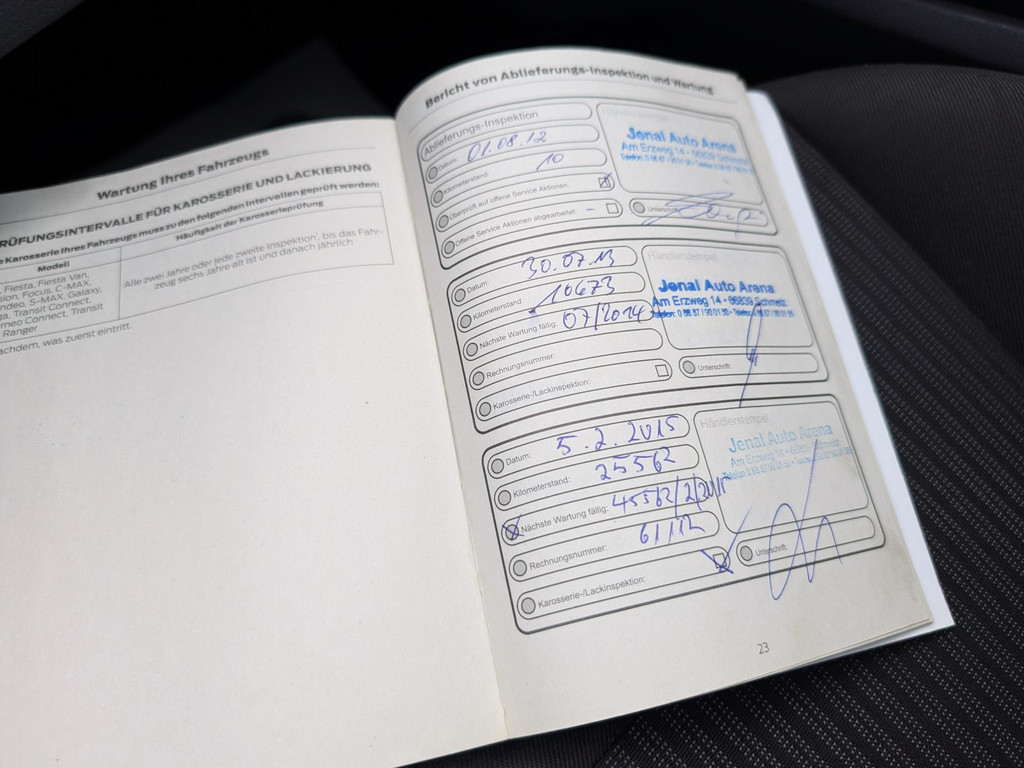 Wartung Ihres Fahrzeugs
RÜFUNGSINTERVALLE FÜR KAROSSERIE UND LACKIERUNG
e Karosserie Ihres Fahrzeugs muss zu den folgenden Intervallen geprüft werden:
Modell
Häufigkeit der Karosserieprüfung
Fiesta, Fiesta Van,
sion, Focus, C-MAX,
ndeo, S-MAX, Galaxy,
ga, Transit Connect,
rneo Connect, Transit
Ranger
Alle zwei Jahre oder jede zweite Inspektion*, bis das Fahr-
zeug sechs Jahre alt ist und danach jährlich
achdem, was zuerst eintritt.
Bericht von Ablieferungs-Inspektion und Wartung
Ablieferungs-Inspektion
Datum: 01.08.12
Kilometerstand: 10
Überprüft auf offene Service Aktionen:
Offene Service Aktionen abgearbeitet: -
Jenal Auto Arena
Am Erzweg 14 - 66839 Schmelz
Unterschrift:
Datum: 30.07.13
Kilometerstand: 10673
Nächste Wartung fällig: 07/2014
Rechnungsnummer:
Karosserie-/Lackinspektion:
Händlerstempel
Jenal Auto Arena
Am Erzweg 14 - 66839 Schmelz
Telefon: 0 68 87 / 90 01 50
Unterschrift:
Datum: 5.2.2015
Kilometerstand: 25562
Nächste Wartung fällig: 45562/2/201
Rechnungsnummer:
Karosserie-/Lackinspektion:
Händlerstempel
Jenal Auto Arena
Am Erzweg 14 - 66839 Schmelz
Unterschrift:
23